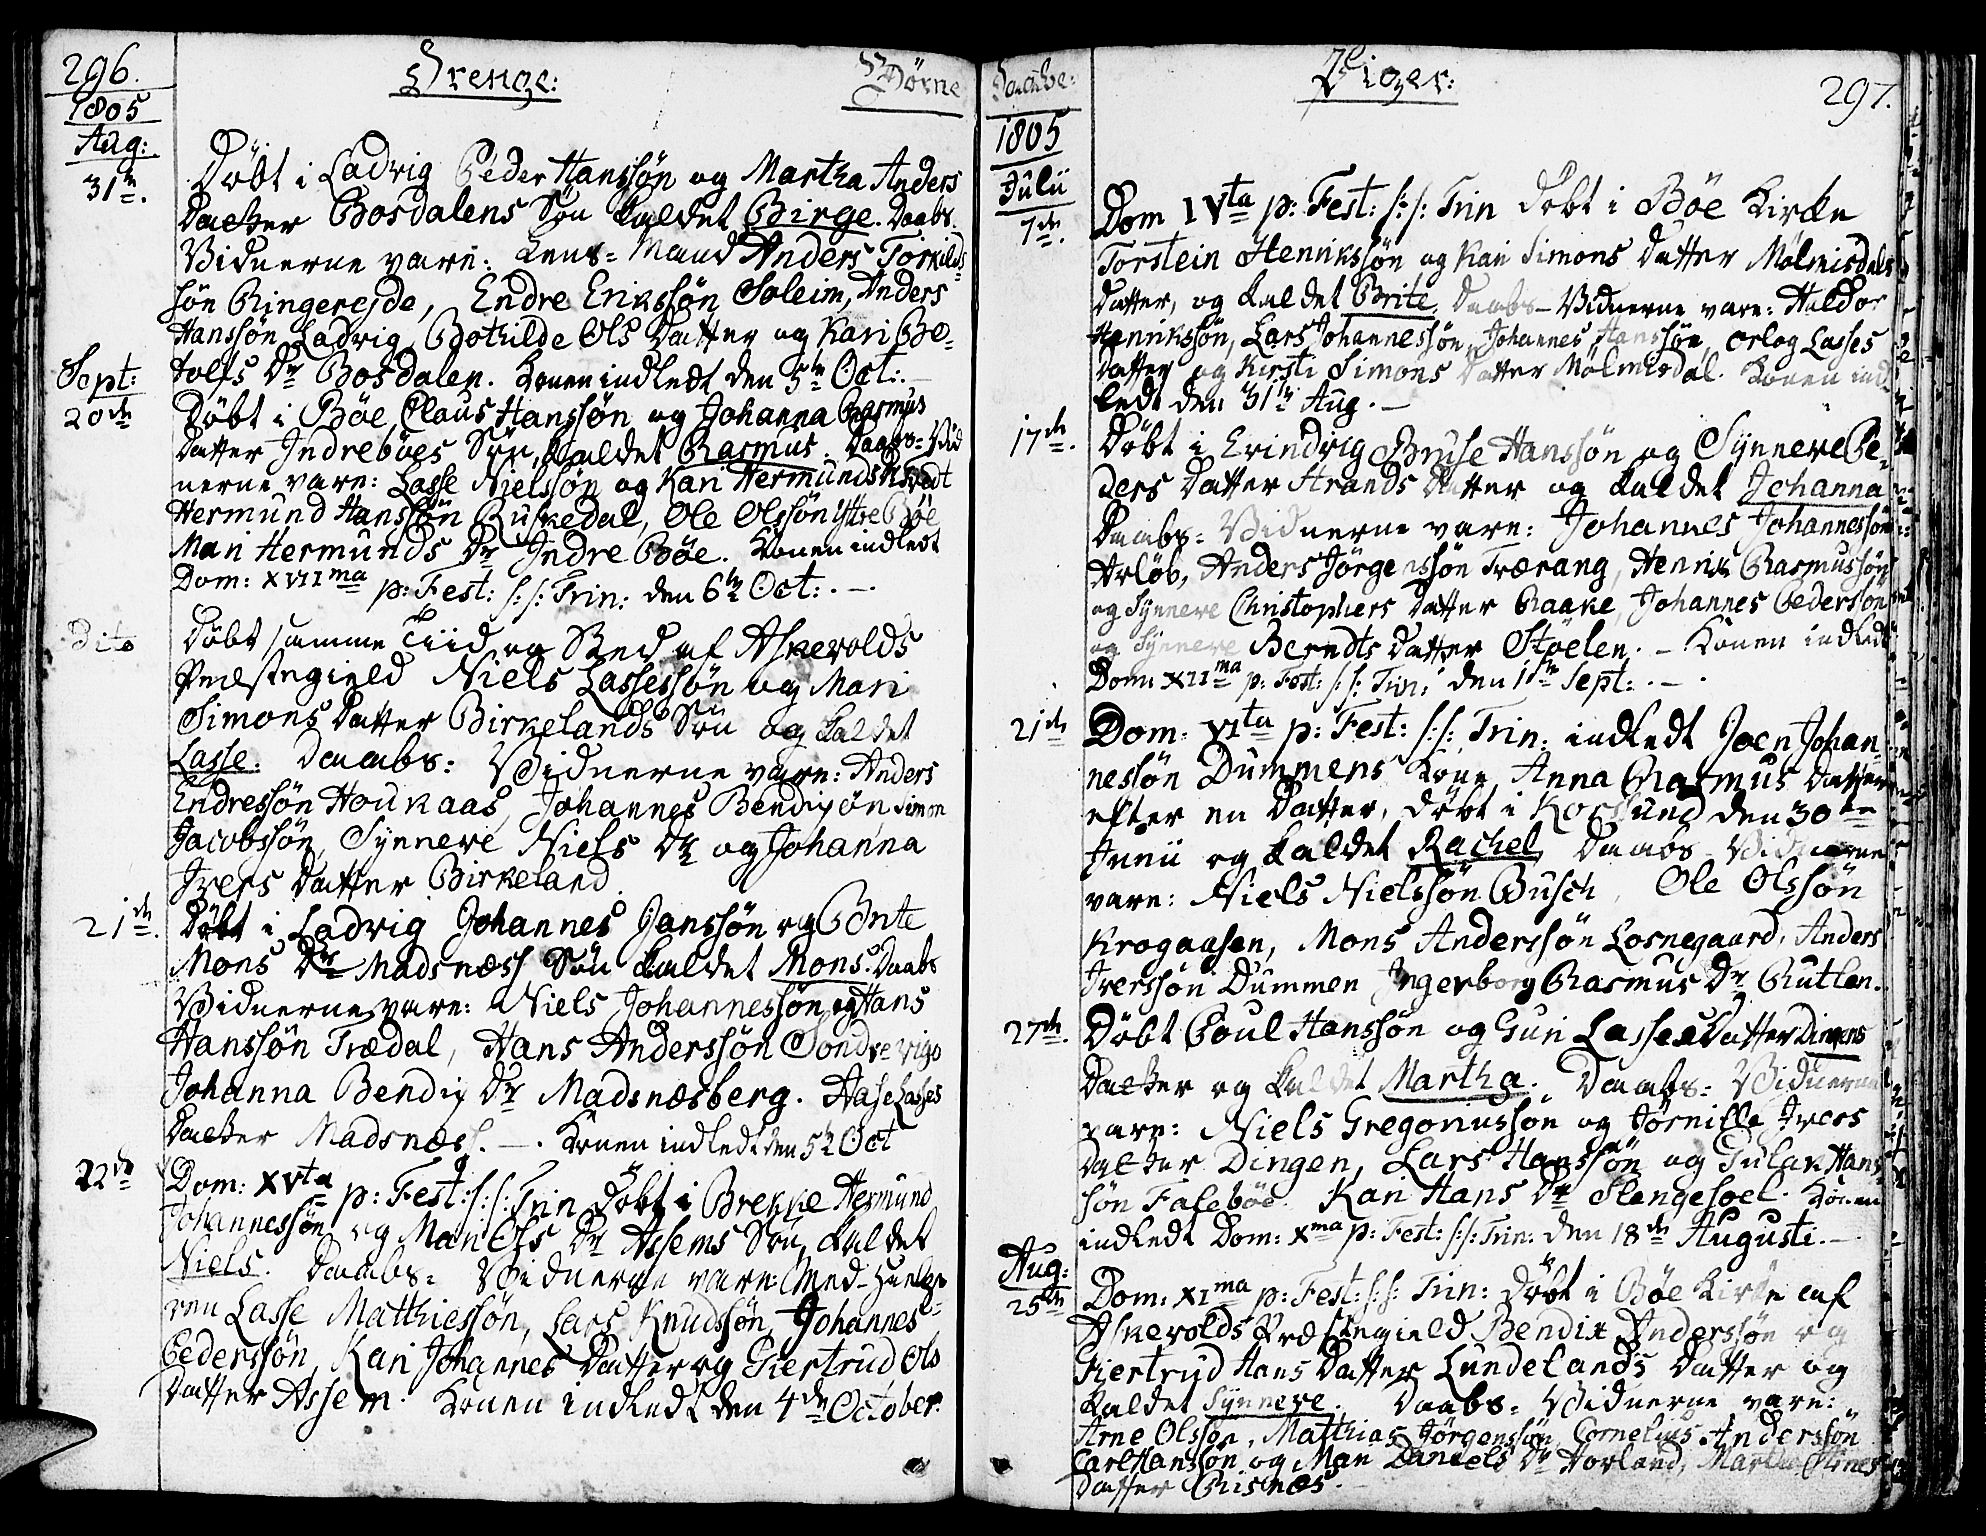 296.
Drenge:
Börne
1805
Aug:
31te.
Döbt i Ladvig Peder Hanssön og Martha Anders
Datter Bosdalens Sön kaldet Birge. Daabs-
Vidnerne vare: Lens-Mand Anders Torkilds-
sön Ringereide, Endre Erikssön Soleim, Anders
Hanssön Ladvig, Bothilde Ols Datter og Kari Bo-
tolfs Dr Bosdalen. Konen indledt den 5te Oct:.
Sept:
20de
Döbt i Böe Claus Hanssön og Johanna Rasmus
Datter Indreböes Sön, kaldet Rasmus. Daabs-Vid
nerne vare: Lasse Nielssön og Kari Hermunds
Hermund Hanssön Ruskedal, Ole Olssön Ytre Böe
Mari Hermunds Dr Indre Böe. Konen indledt
Dom: XVIIma p: Fest: s:s: Trin: den 6te Oct:. —
Dito
Döbt samme Tiid og Sted af Askevolds
Præstegield Niels Lassessön og Mari
Simons Datter Birkelands Sön og kaldet
Lasse. Daabs-Vidnerne vare: Anders
Endressön Houkaas, Johannes Bendixön Simon
Jacobssön, Synneve Niels Dr og Johanna
Ivers Datter Birkeland
21de.
Döbt i Ladvig Johannes Janssön og Brite
Mons Dr Madsnæss Sön kaldet Mons. Daabs
Vidnerne vare: Niels Johannessön og Hans
Hanssön Trædal, Hans Anderssön Söndre Vigo
Johanna Bendix Dr Madsnæsberg. Aase Lasses
Datter Madsnæss. —. Konen indledt den 5te Oct
22de
Dom: XVta p: Fest: s:s: Trin Döbt i Brekke Hermund
Johannessön og Mari Ols Dr Assems Sön, kaldet
Niels. Daabs-Vidnerne vare: Med-Hielpe-
ren Lasse Matthiessön, Lars Knudssön, Johannes
Pederssön, Kari Johannes Datter og Giertrud Ols
Datter Assem. Konen indledt den 4de October.
Daabte:
Piger:
297.
1805
Julii
7de.
Dom IVta p: Fest: s:s: Trin Döbt i Böe Kirke
Torstein Henrikssön og Kari Simons Datter Mölmisdals
Datter, og kaldet Brite. Daabs-Vidnerne vare: Haldor
Henrikssön, Lars Johannessön, Johannes Hanssön, Orlog Lasses
Datter og Kirsti Simons Datter Mölmisdal. Konen ind
ledt den 31te Aug. —
17de.
Döbt i Evindvig Bruse Hanssön og Synneve Pe-
ders Datter Strands Datter og kaldet Johanna
Daabs-Vidnerne vare: Johannes Johannessön
Arlöb, Anders Jörgenssön Træ­rang, Henrik Rasmussön
og Synneve Christophers Datter Raake, Johannes Pederssön
og Synneve Berndts Datter Stöelen. — Konen indledt
Dom: XIIma p: Fest: s:s: Trin: den 1ste Sept:. —.
21de
Dom: VIta p: Fest: s:s: Trin: indledt Joen Johan-
nessön Dummens Kone Anna Rasmus Datter
efter en Datter, döbt i Korssund den 30te
Junii og kaldet Rachel, Daabs-Vidnerne
vare: Niels Nielssön Busch, Ole Olssön
Krogaasen, Mons Anderssön Losnegaard, Anders
Iverssön Dummen Ingerborg Rasmus Dr Rutlen.
27de.
Döbt Poul Hanssön og Guri Lasses Datter Dingens
Datter og kaldet Martha. Daabs-Vidnerne
vare: Niels Gregoriussön og Jörnille Ivers
Datter Dingen, Lars Hanssön og Gulak Hans-
sön Faleböe Kari Hans Dr Slengesoel. Konen
indledt Dom: Xma p: Fest: s:s: Trin: den 18de Augusti. —
Aug:
25de
Dom: XIma p: Fest: s:s: Trin: döbt i Böe Kirke af
Askevolds Præstegield Bendix Anderssön og
Giertrud Hans Datter Lundelands Datter og
kaldet Synneve. Daabs-Vidnerne vare:
Arne Olssön, Matthias Jörgenssön, Cornelius Anderssön
Carl Hanssön og Mari Daniels Dr Hovland,
Datter Risnes.